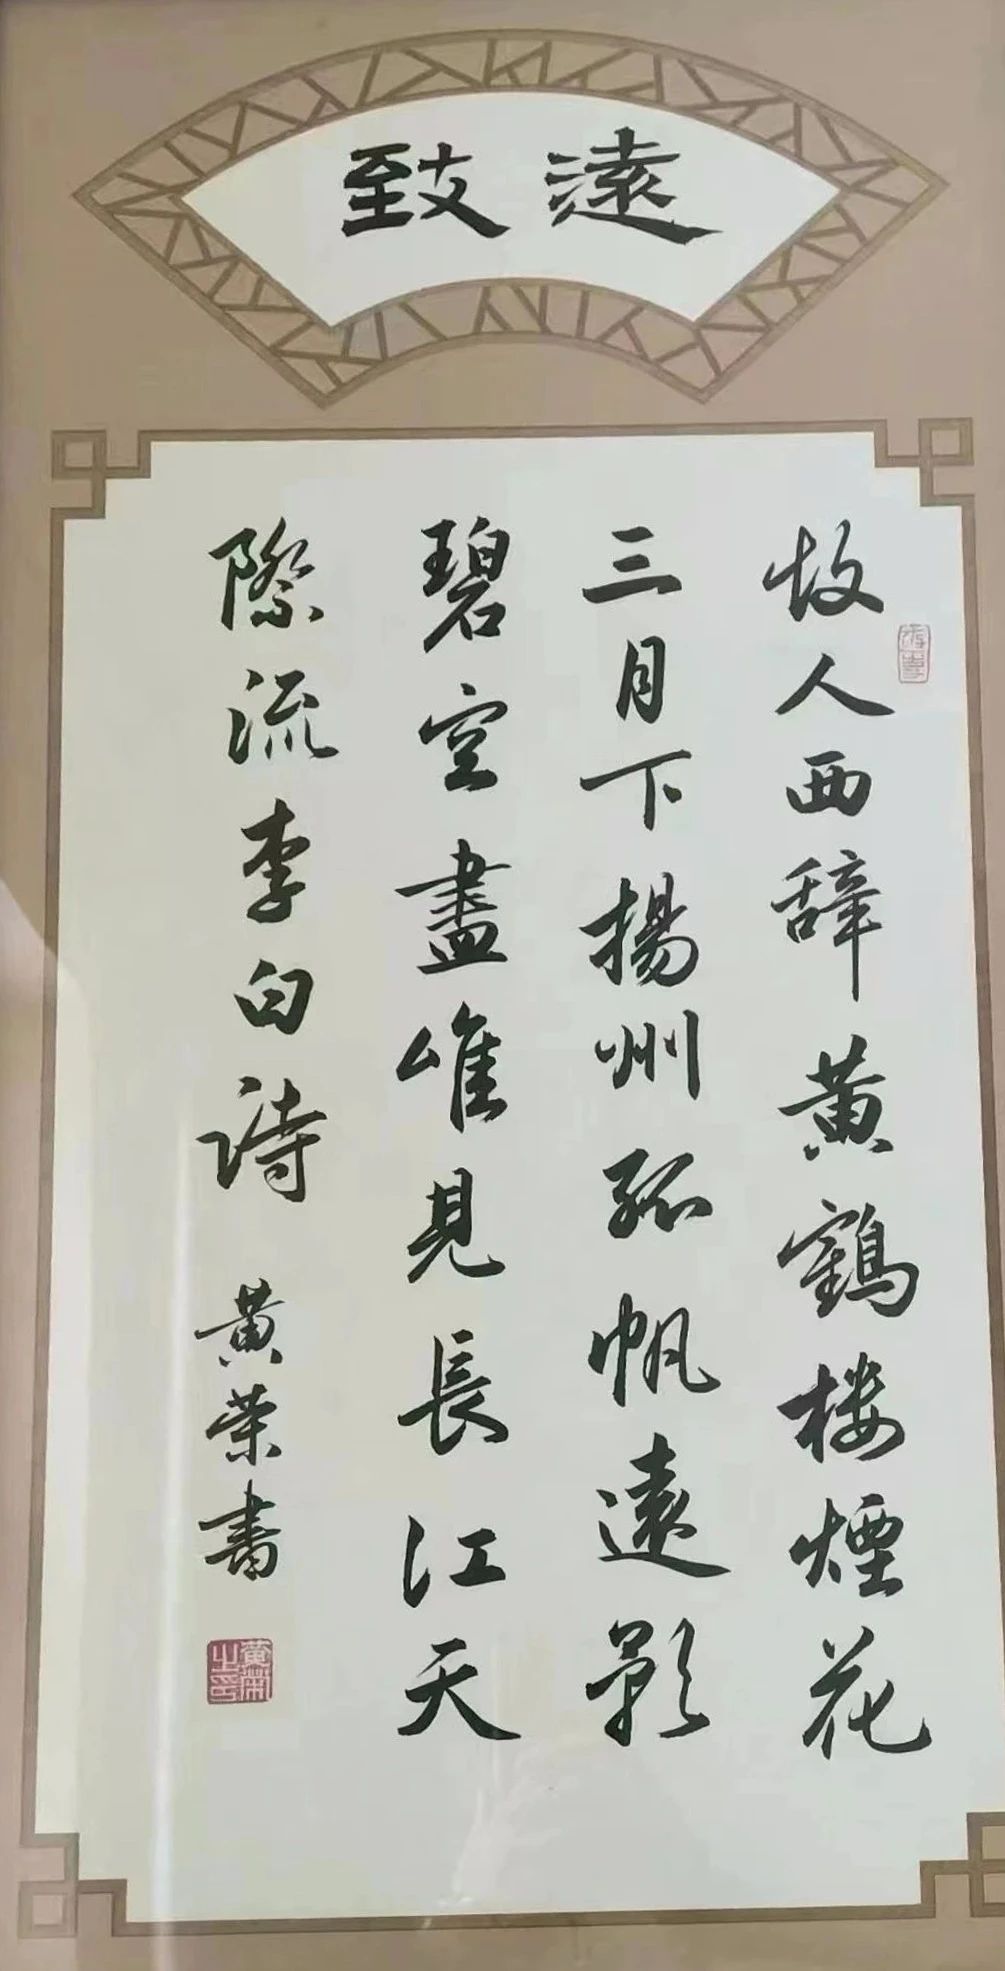 致遠
故人西辞黄鶴楼煙花
三月下揚州孤帆遠影
碧空盡唯見長江天
際流李白詩 黄荣書
黄榮之印